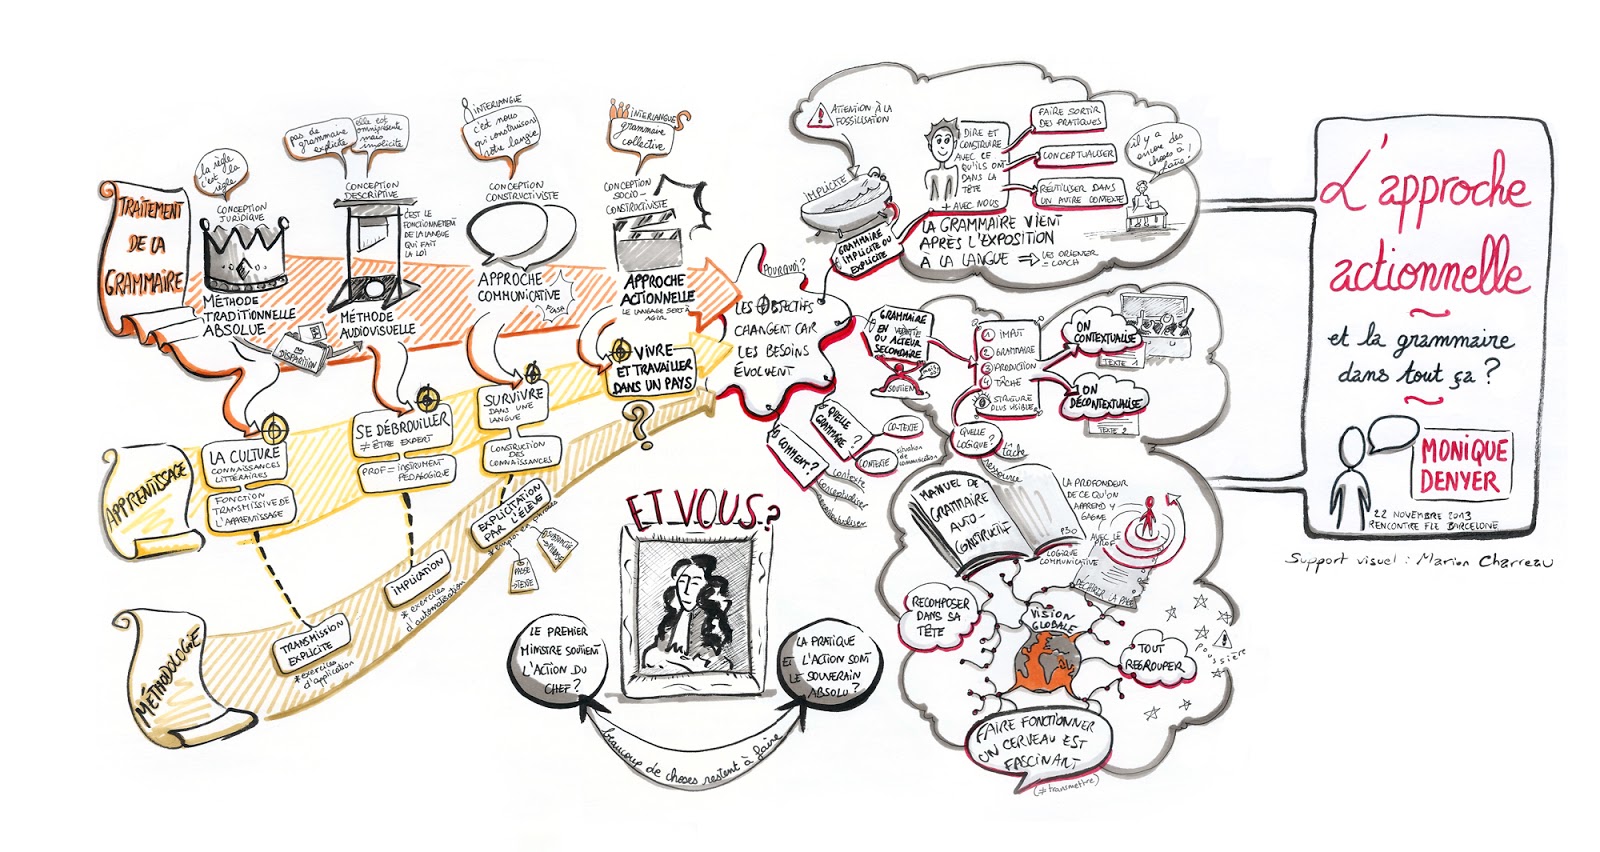 TRAITEMENT
DE LA
GRAMMAIRE
la règle
c'est la
règle
CONCEPTION
JURIDIQUE
MÉTHODE
TRADITIONNELLE
ABSOLUE
EN
DISPARITION
pas de
grammaire
explicite
elle est
omniprésente
mais
implicite
CONCEPTION
DESCRIPTIVE
C'EST LE
FONCTIONNEMENT
DE LA LANGUE
QUI FAIT
LA LOI
MÉTHODE
AUDIOVISUELLE
INTERLANGUE
c'est nous
qui construisons
notre langue
CONCEPTION
CONSTRUCTIVISTE
APPROCHE
COMMUNICATIVE
INTERLANGUES
grammaire
collective
CONCEPTION
SOCIO-
CONSTRUCTIVISTE
APPROCHE
ACTIONNELLE
LE LANGAGE SERT À
AGIR
APPRENTISSAGE
LA CULTURE
CONNAISSANCES
LITTÉRAIRES
FONCTION
TRANSMISSIVE DE
L'APPRENTISSAGE
SE DÉBROUILLER
≠ ÊTRE EXPERT
PROF = INSTRUMENT
PÉDAGOGIQUE
SURVIVRE
DANS UNE
LANGUE
CONSTRUCTION
DES
CONNAISSANCES
VIVRE
ET TRAVAILLER
DANS UN PAYS
?
MÉTHODOLOGIE
TRANSMISSION
EXPLICITE
* exercices
d'application
IMPLICATION
* exercices
d'automatisation
EXPLICITATION
PAR L'ÉLÈVE
POURQUOI?
LES OBJECTIFS
CHANGENT CAR
LES BESOINS
ÉVOLUENT
GRAMMAIRE
IMPLICITE OU
EXPLICITE
ATTENTION À LA
FOSSILISATION
IMPLICITE
DIRE ET
CONSTRUIRE
AVEC CE
QU'ILS ONT
DANS LA
TÊTE
+ AVEC NOUS
FAIRE SORTIR
DES PRATIQUES
CONCEPTUALISER
RÉUTILISER DANS
UN AUTRE CONTEXTE
il y a
encore des
choses à
faire!
LA GRAMMAIRE VIENT
APRÈS L'EXPOSITION
À LA LANGUE ⇒ LES ORIENTER
= COACH
GRAMMAIRE
EN VEDETTE
OU ACTEUR
SECONDAIRE
SOUTIEN
1 INPUT
2 GRAMMAIRE
3 PRODUCTION
4 TÂCHE
STRUCTURE
PLUS VISIBLE
ON
CONTEXTUALISE
TEXTE 1
ON
DÉCONTEXTUALISE
TEXTE 2
QUELLE
LOGIQUE?
tâche
ressource
COMMENT?
QUELLE
GRAMMAIRE?
CO-TEXTE
CONTEXTE
situation
de
communication
contexte
conceptualiser
MANUEL DE
GRAMMAIRE
AUTO-
CONSTRUCTIF
P30
LOGIQUE
COMMUNICATIVE
LA PROFONDEUR
DE CE QU'ON
APPREND Y
GAGNE
AVEC LE
PROF
VISION
GLOBALE
RECOMPOSER
DANS SA
TÊTE
TOUT
REGROUPER
poussière
FAIRE FONCTIONNER
UN CERVEAU EST
FASCINANT
(≠ transmettre)
ET VOUS?
LE PREMIER
MINISTRE SOUTIENT
L'ACTION DU
CHEF?
LA PRATIQUE
ET L'ACTION SONT
LE SOUVERAIN
ABSOLU?
beaucoup de choses restent à faire
L'approche
actionnelle
et la grammaire
dans tout ça?
MONIQUE
DENYER
22 NOVEMBRE 2013
RENCONTRE FLE BARCELONE
Support visuel : Marion Charreau